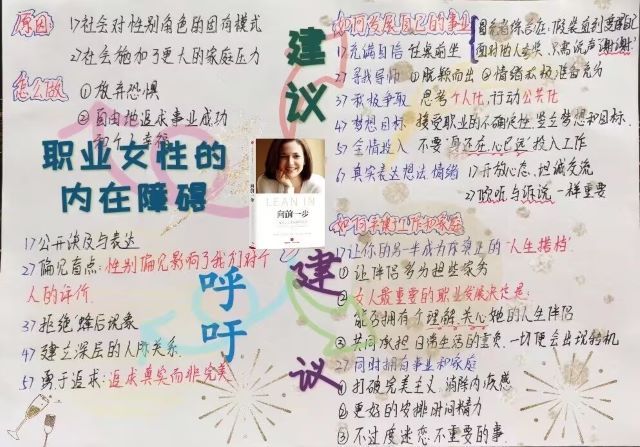 原因
1>社会对性别角色的固有模式
2>社会施加了更大的家庭压力
怎么做
① 放弃恐惧
② 自由地追求事业成功
和个人幸福
职业女性的
内在障碍
1>公开谈及与表达
2>偏见盲点:性别偏见影响了我们对个
人的评价.
3>拒绝'蜂后现象'
4>建立深层的人脉关系.
5>勇于追求:追求真实而非完美
呼吁
LEAN IN
向前一步
建议
如何发展自己的事业
1>充满自信 往桌前坐
面对他人夸奖,只需说声"谢谢"
2>寻找导师 ①脱颖而出 ②情绪积极准备充为
3>积极争取 思考个人化,行动公共化
4>梦想目标 接受职业的不确定性,竖立梦想和目标.
5>全情投入 不要"身还在,心已远"投入工作
6>真实表达想法情绪
1>开放心态,坦诚交流
2>倾听与诉说一样重要
建议
如何平衡工作和家庭
1>让你的另一半成为你真正的"人生搭档"
① 让伴侣多为担些家务
② 女人最重要的职业发展决定是:
能否拥有个理解、关心她的人生伴侣
③ 共同承担日常生活的重负,一切便会出现转机
2>同时拥有事业和家庭
① 打破完美主义,消除内疚感
② 更好的安排时间精力
③ 不过度迷恋不重要的事